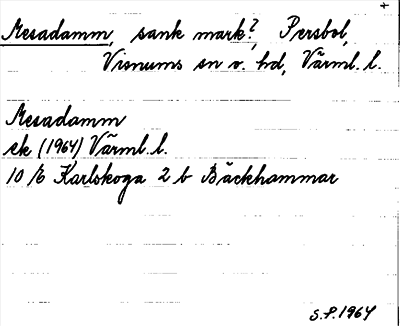 +
Mesadamm, sank mark?, Persbol,
Visnums sn o. hd, Värml. l.
Mesadamm
ek (1964) Värml. l.
10 /E Karlskoga 2 b Bäckhammar
S.P. 1964